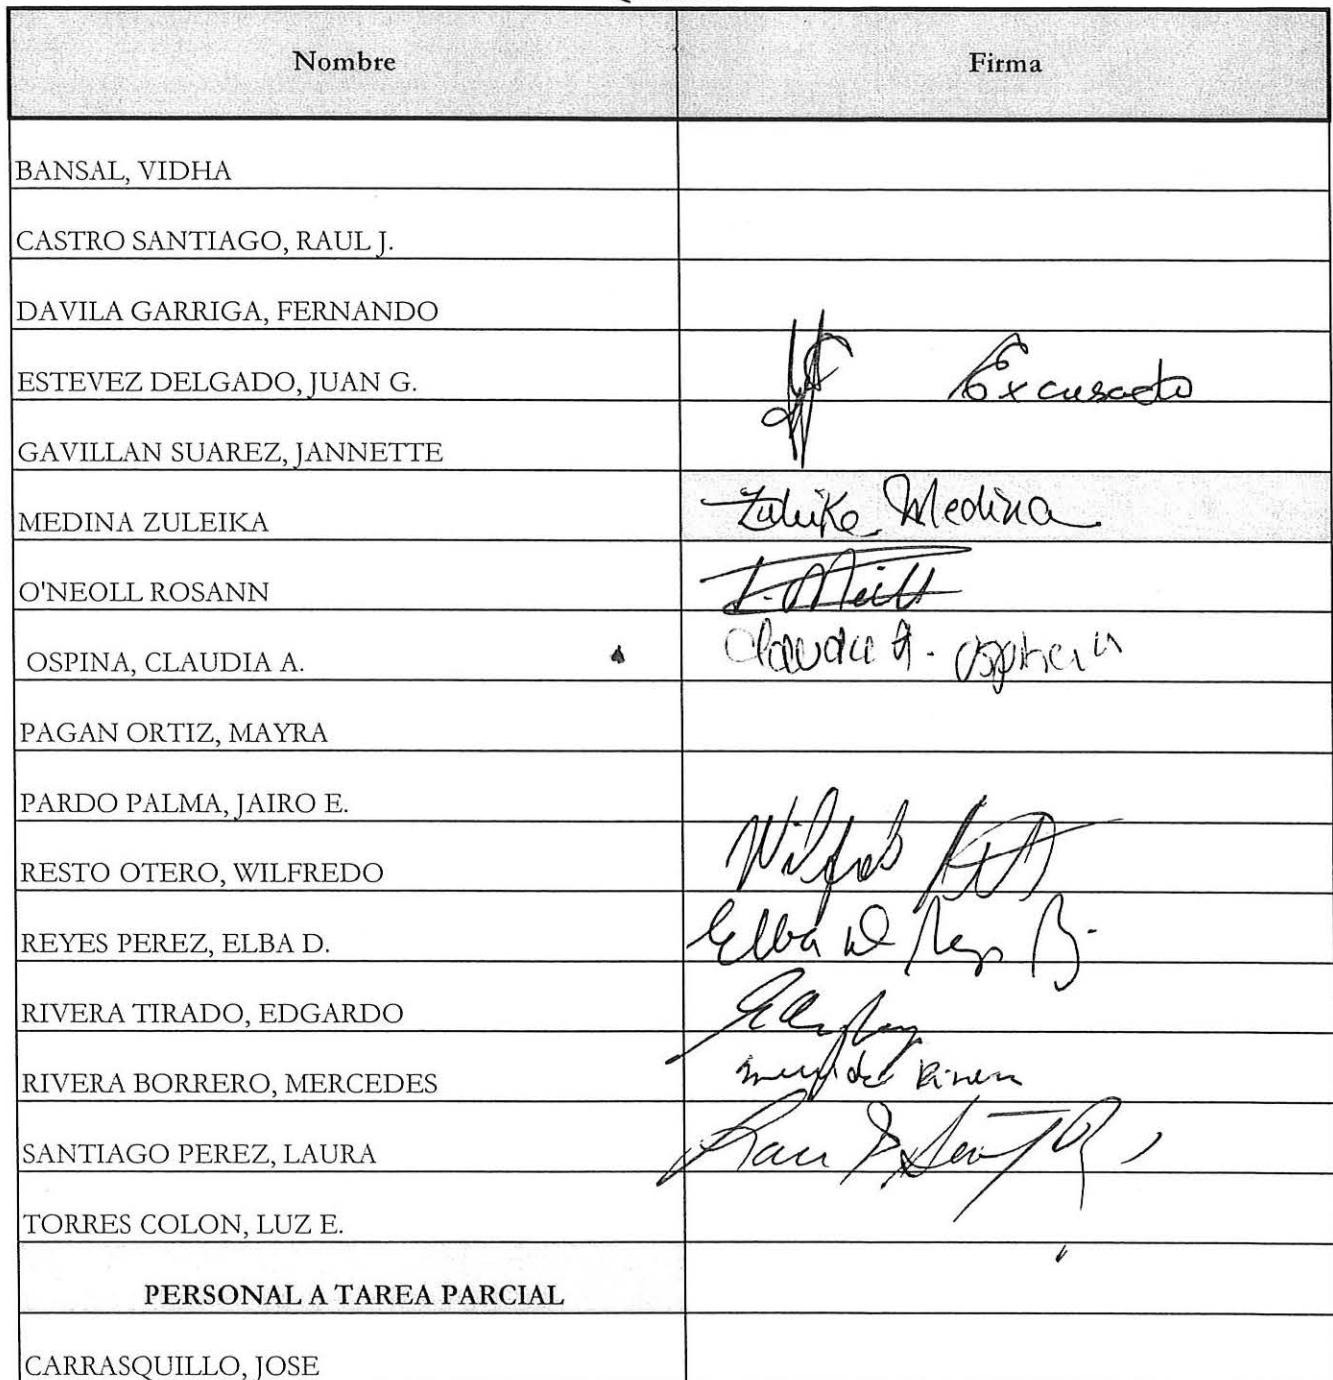 Nombre Firma
BANSAL, VIDHA
CASTRO SANTIAGO, RAUL J.
DAVILA GARRIGA, FERNANDO
ESTEVEZ DELGADO, JUAN G. Excusado
GAVILLAN SUAREZ, JANNETTE
MEDINA ZULEIKA Zuleika Medina
O'NEOLL ROSANN
OSPINA, CLAUDIA A. Claudia A. Ospina
PAGAN ORTIZ, MAYRA
PARDO PALMA, JAIRO E.
RESTO OTERO, WILFREDO Wilfredo
REYES PEREZ, ELBA D. Elba D Reyes P.
RIVERA TIRADO, EDGARDO
RIVERA BORRERO, MERCEDES Mercedes Rivera
SANTIAGO PEREZ, LAURA
TORRES COLON, LUZ E.
PERSONAL A TAREA PARCIAL
CARRASQUILLO, JOSE